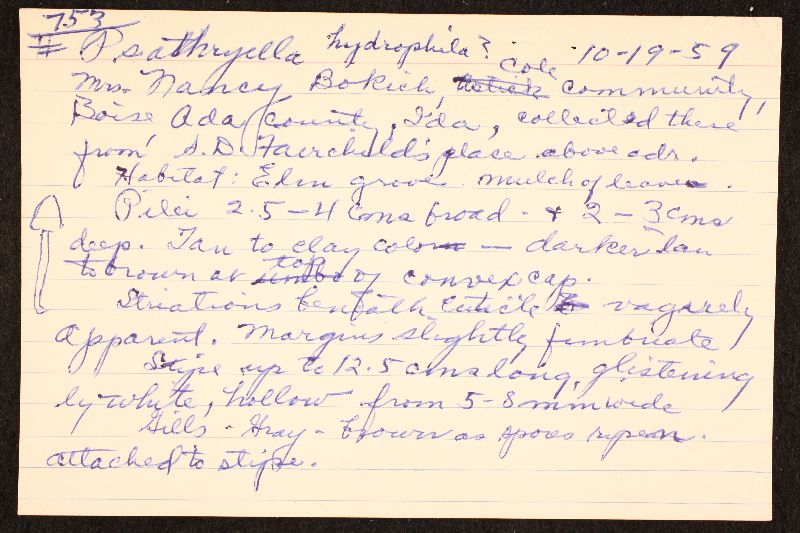 753
II Psathryella hydrophila? 10-19-59
Mrs. Nancy Bokich, Cole community,
Boise Ada County, Ida, collected these
from S.D. Fairchild's place above adr.
Habitat: Elm grove. mulch of leaves.
Pilei 2.5-4 cms broad - & 2-3 cms
deep. Tan to clay color — darker tan
to brown at top of convex cap.
Striations beneath cuticle vaguely
apparent. Margins slightly fimbriate
Stipe up to 12.5 cms long, glistening
ly white, hollow from 5-8 mm wide
Gills - Gray - brown as spores ripen.
attached to stipe.